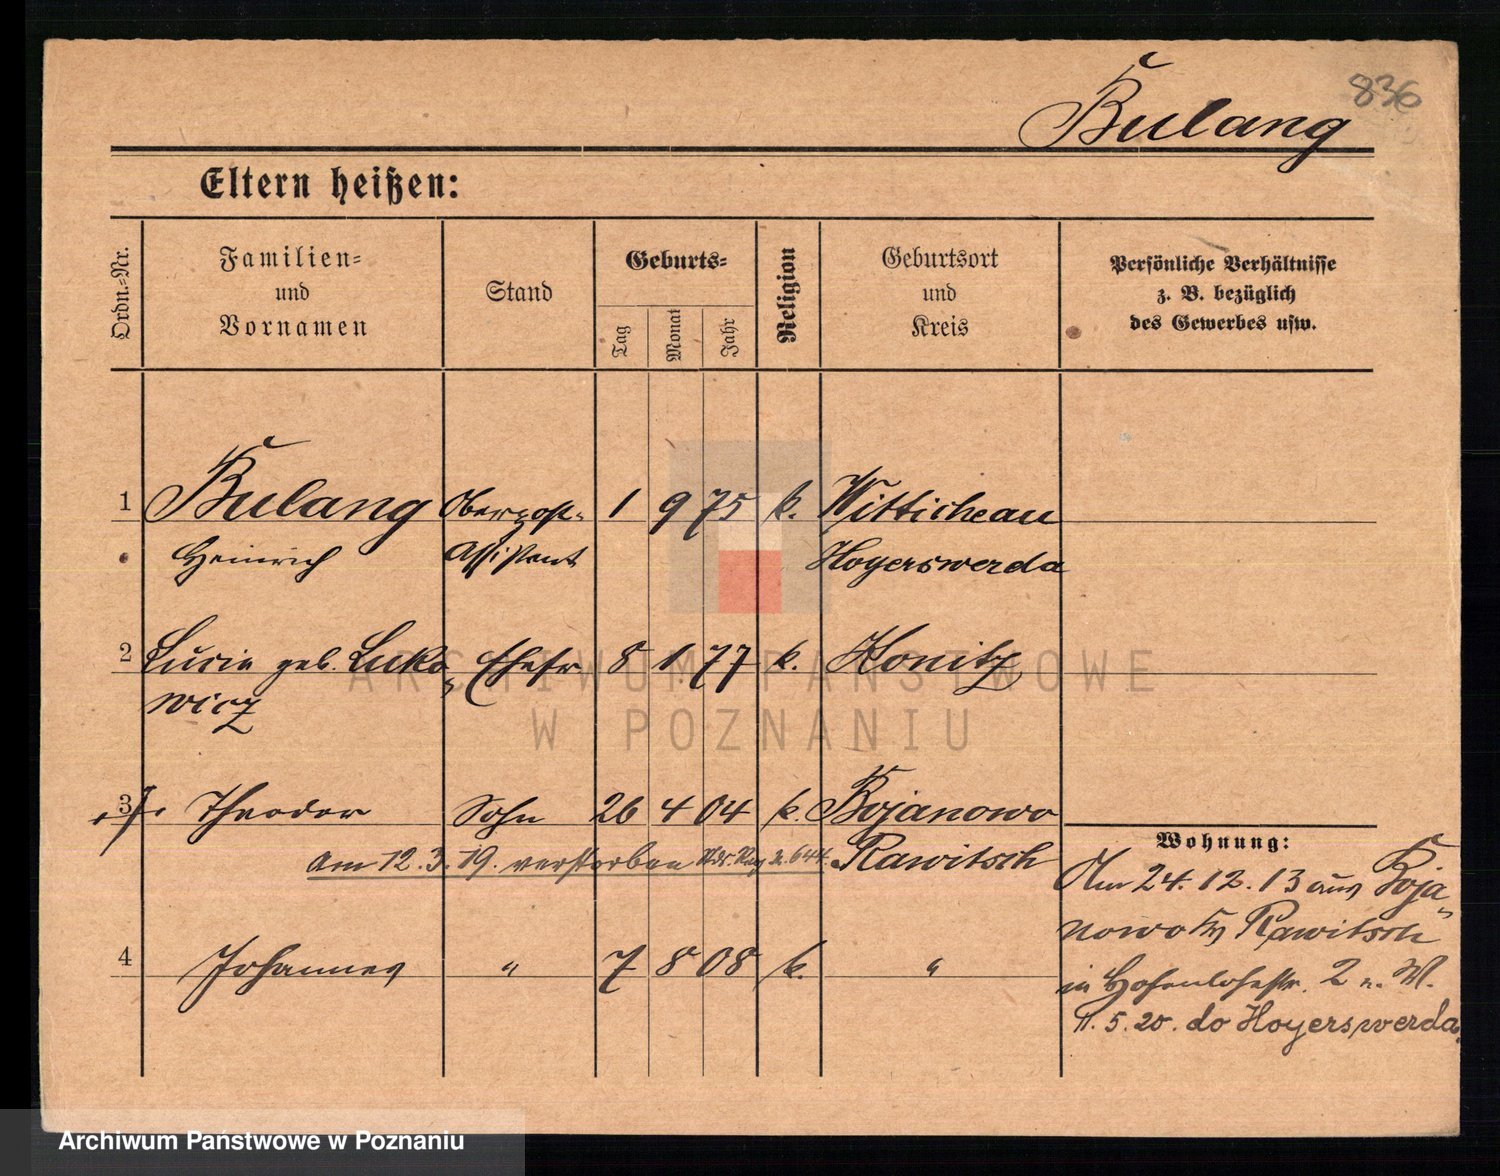 836
Bulang
Eltern heißen:
Ordn.-Nr.
Familien-
und
Vornamen
Stand
Geburts-
Tag
Monat
Jahr
Religion
Geburtsort
und
Kreis
Persönliche Verhältnisse
z. B. bezüglich
des Gewerbes usw.
1 Bulang Oberpost- 1 9 75 k. Wittichenau
Heinrich Assistent Hoyerswerda
2 Lucie geb. Luko Ehefr 8 1. 77 k. Konitz
wicz
3 Theodor Sohn 26 4 04 k. Bojanowo
am 12. 3. 19. verstorben 644. Rawitsch
4 Johannes " 7 8 08 k. "
Wohnung:
Am 24. 12. 13 aus Boja
nowo Kr Rawitsch
in Hohenlohestr. 2 n. W.
11. 5. 20. do Hoyerswerda
ARCHIWUM PAŃSTWOWE
W POZNANIU
Archiwum Państwowe w Poznaniu